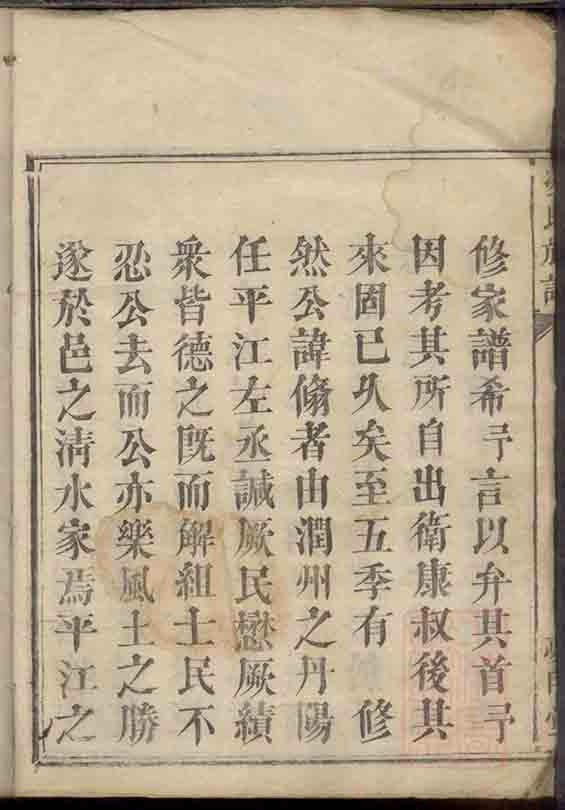 修家譜希予言以弁其首予
因考其所自出衛康叔後其
來固已久矣至五季有 修
然公諱翛者由潤州之丹陽
任平江左丞諴厥民懋厥績
衆皆德之既而解組士民不
忍公去而公亦樂風土之勝
遂於邑之清水家焉平江之